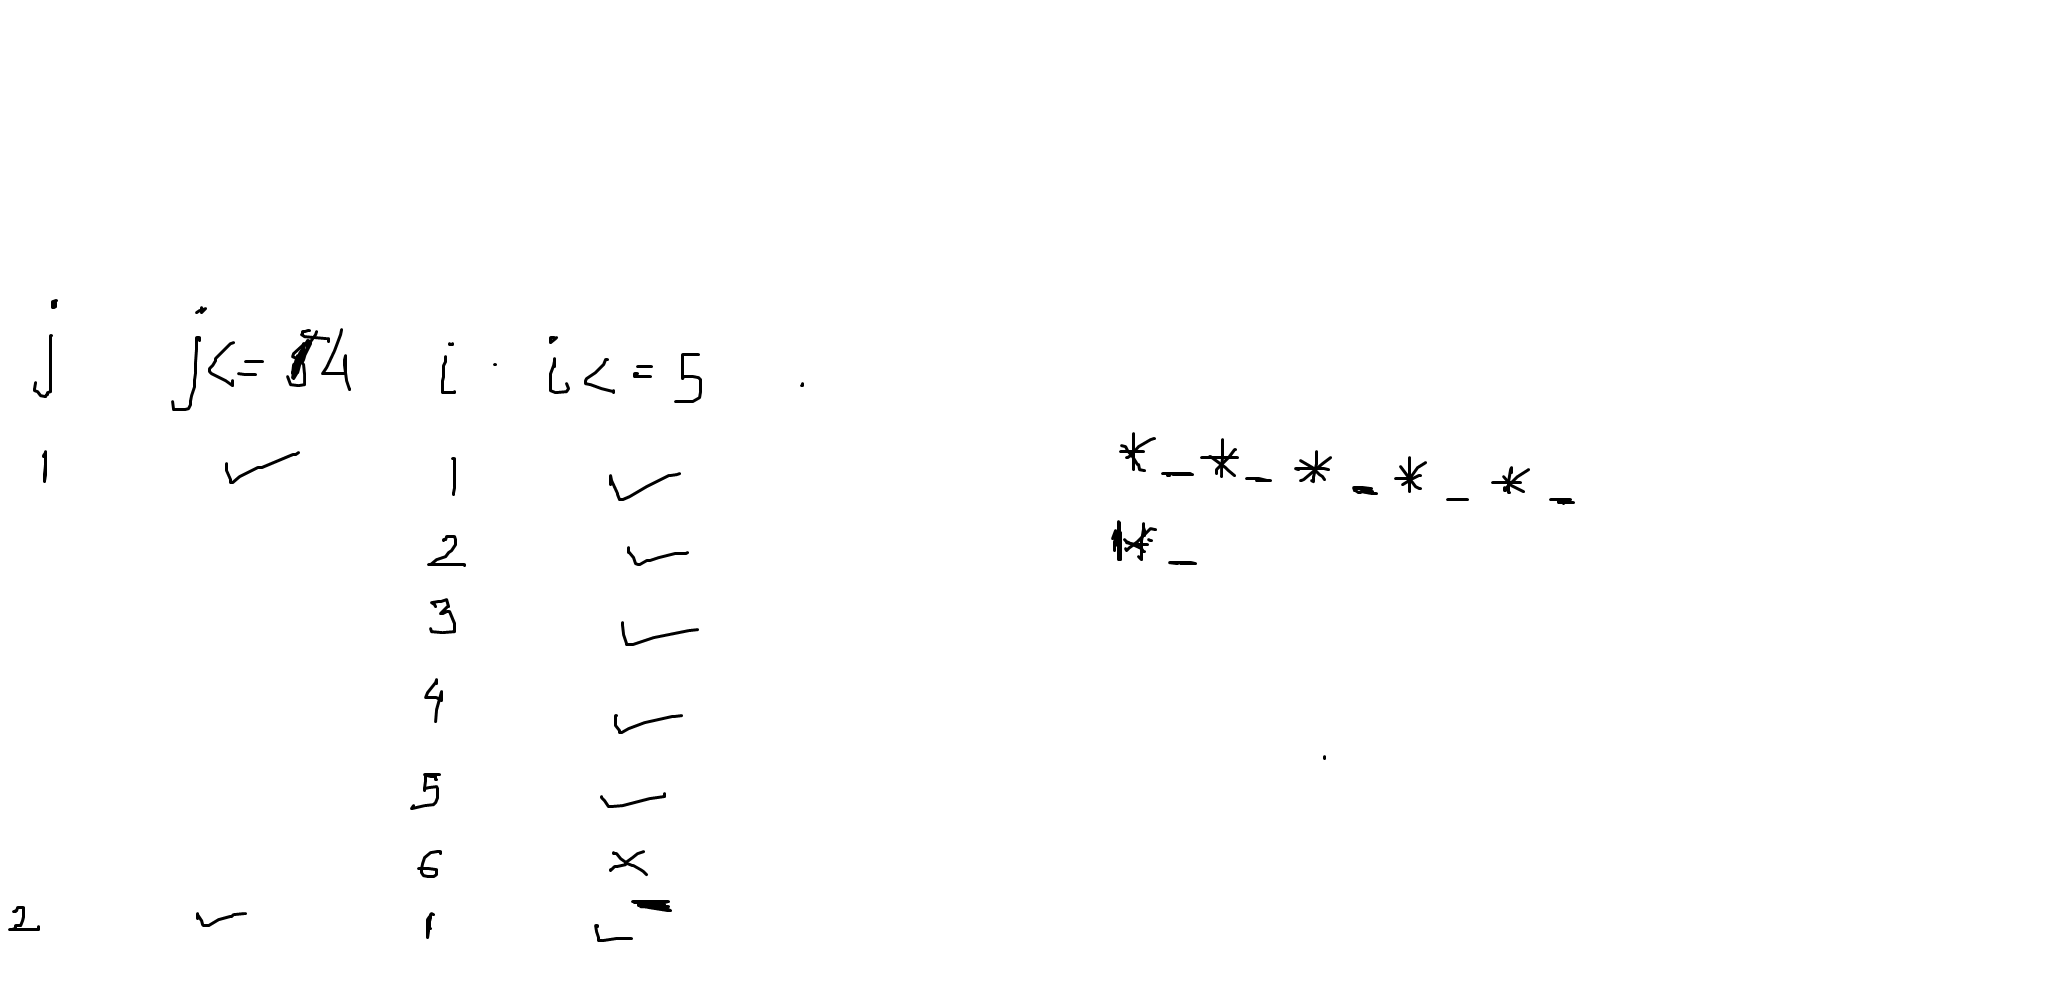 j j<=4 i i<=5
*_*_*_*_*_
1 ✓ 1 ✓
*_
2 ✓
3 ✓
4 ✓
5 ✓
6 ×
2 ✓ 1 ✓